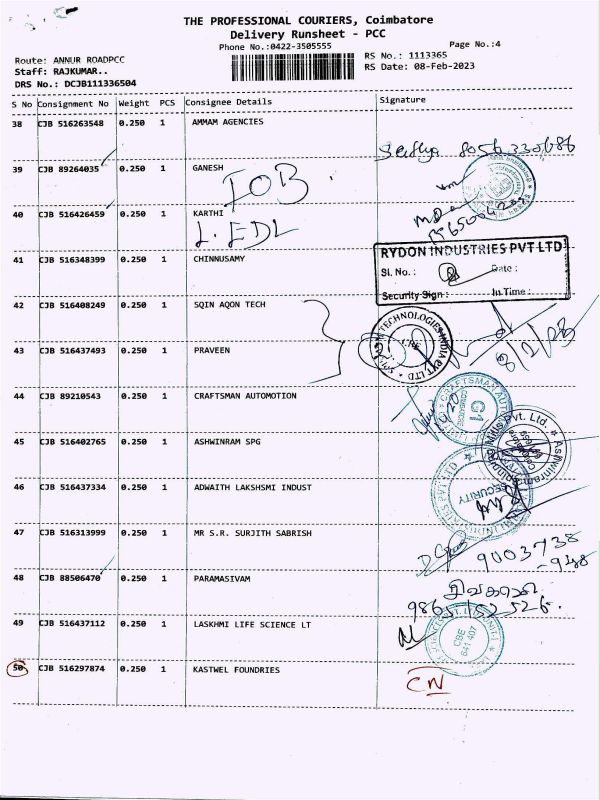 THE PROFESSIONAL COURIERS, Coimbatore
Delivery Runsheet - PCC
Phone No.:0422-3505555
Page No.:4
Route: ANNUR ROADPCC
Staff: RAJKUMAR..
DRS No.: DCJB111336504
RS No.: 1113365
RS Date: 08-Feb-2023
S No Consignment No Weight PCS Consignee Details Signature
38 CJB 516263548 0.250 1 AMMAM AGENCIES
39 CJB 89264035 0.250 1 GANESH
IOB
40 CJB 516426459 0.250 1 KARTHI
L.EDL
41 CJB 516348399 0.250 1 CHINNUSAMY
RYDON INDUSTRIES PVT LTD
Sl. No.: Date :
Security Sign : In Time :
42 CJB 516408249 0.250 1 SQIN AQON TECH
8/2/23
43 CJB 516437493 0.250 1 PRAVEEN
TECHNOLOGIES INDIA PVT LTD
CBE
44 CJB 89210543 0.250 1 CRAFTSMAN AUTOMOTION
G1
45 CJB 516402765 0.250 1 ASHWINRAM SPG
Mills Pvt. Ltd.
46 CJB 516437334 0.250 1 ADWAITH LAKSHSMI INDUST
SECURITY
47 CJB 516313999 0.250 1 MR S.R. SURJITH SABRISH
9003738
-948
48 CJB 88506470 0.250 1 PARAMASIVAM
49 CJB 516437112 0.250 1 LASKHMI LIFE SCIENCE LT
CBE
641 407
50 CJB 516297874 0.250 1 KASTWEL FOUNDRIES
CN